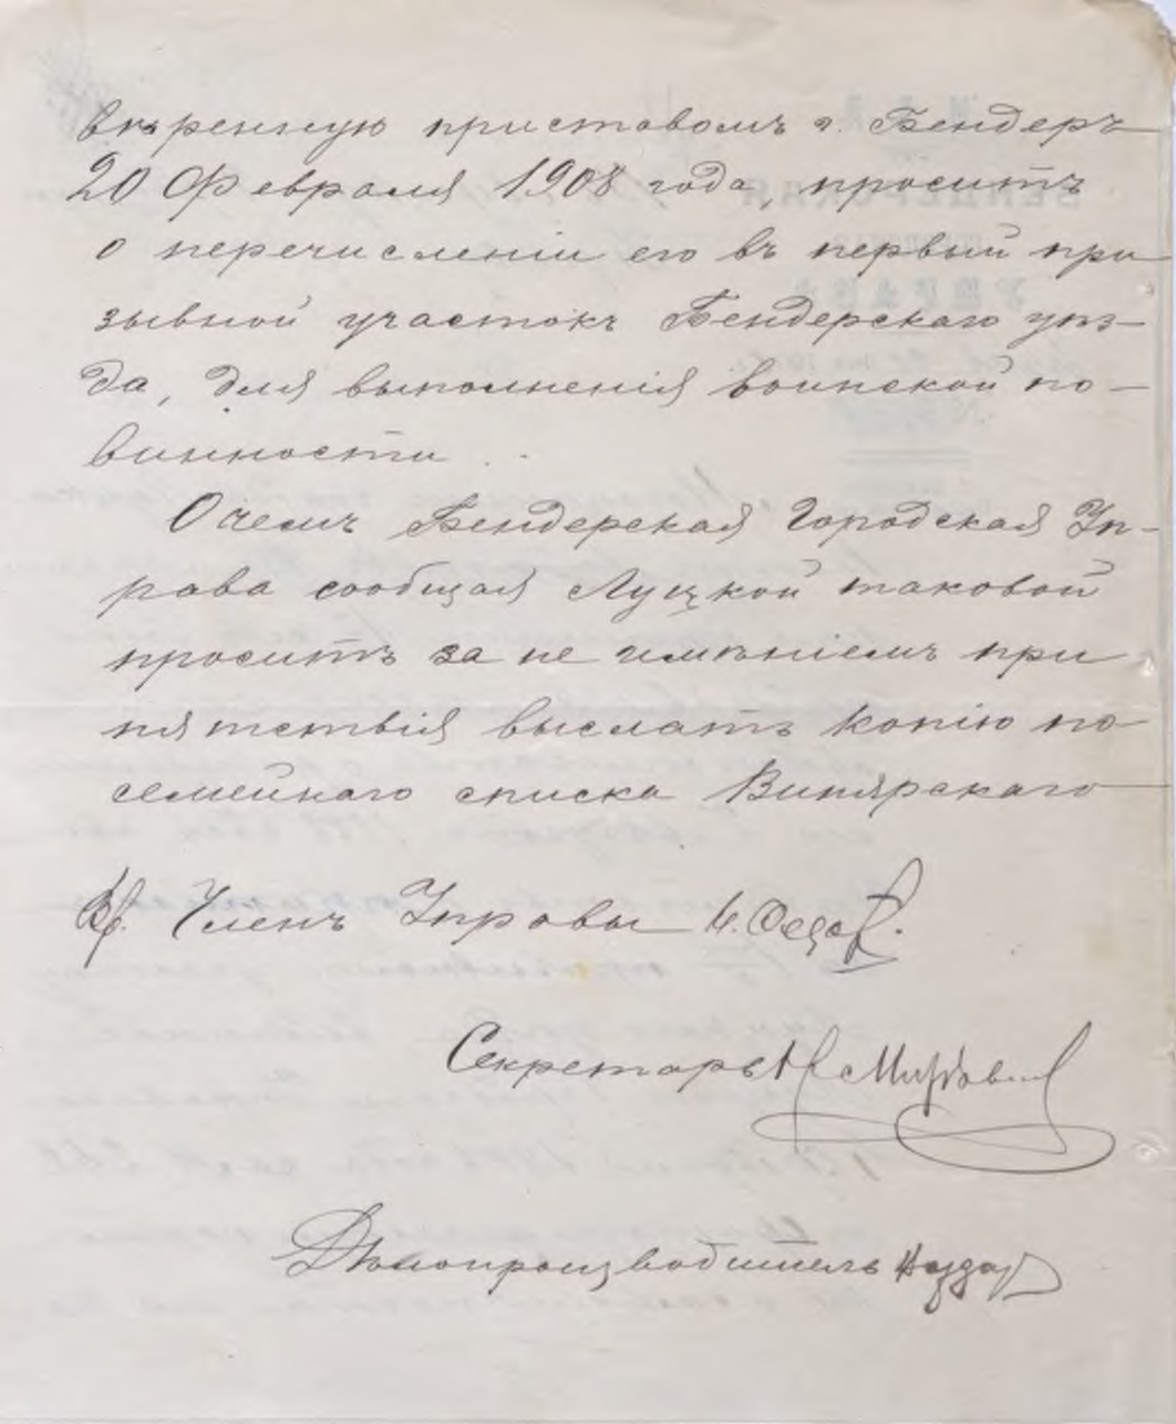 вѣренную приставомъ г. Бендеръ
20 Февраля 1908 года, проситъ
о перечисленіи его въ первый при
зывной участокъ Бендерскаго уѣз-
да, для выполненія воинской по-
винности
О чемъ Бендерская Городская Уп-
рава сообщая Луцкой таковой
проситъ за не имѣніемъ при
пятствія выслать копію по
семейнаго списка Винярскаго
Членъ Управы
Секретарь
Дѣлопроизводитель